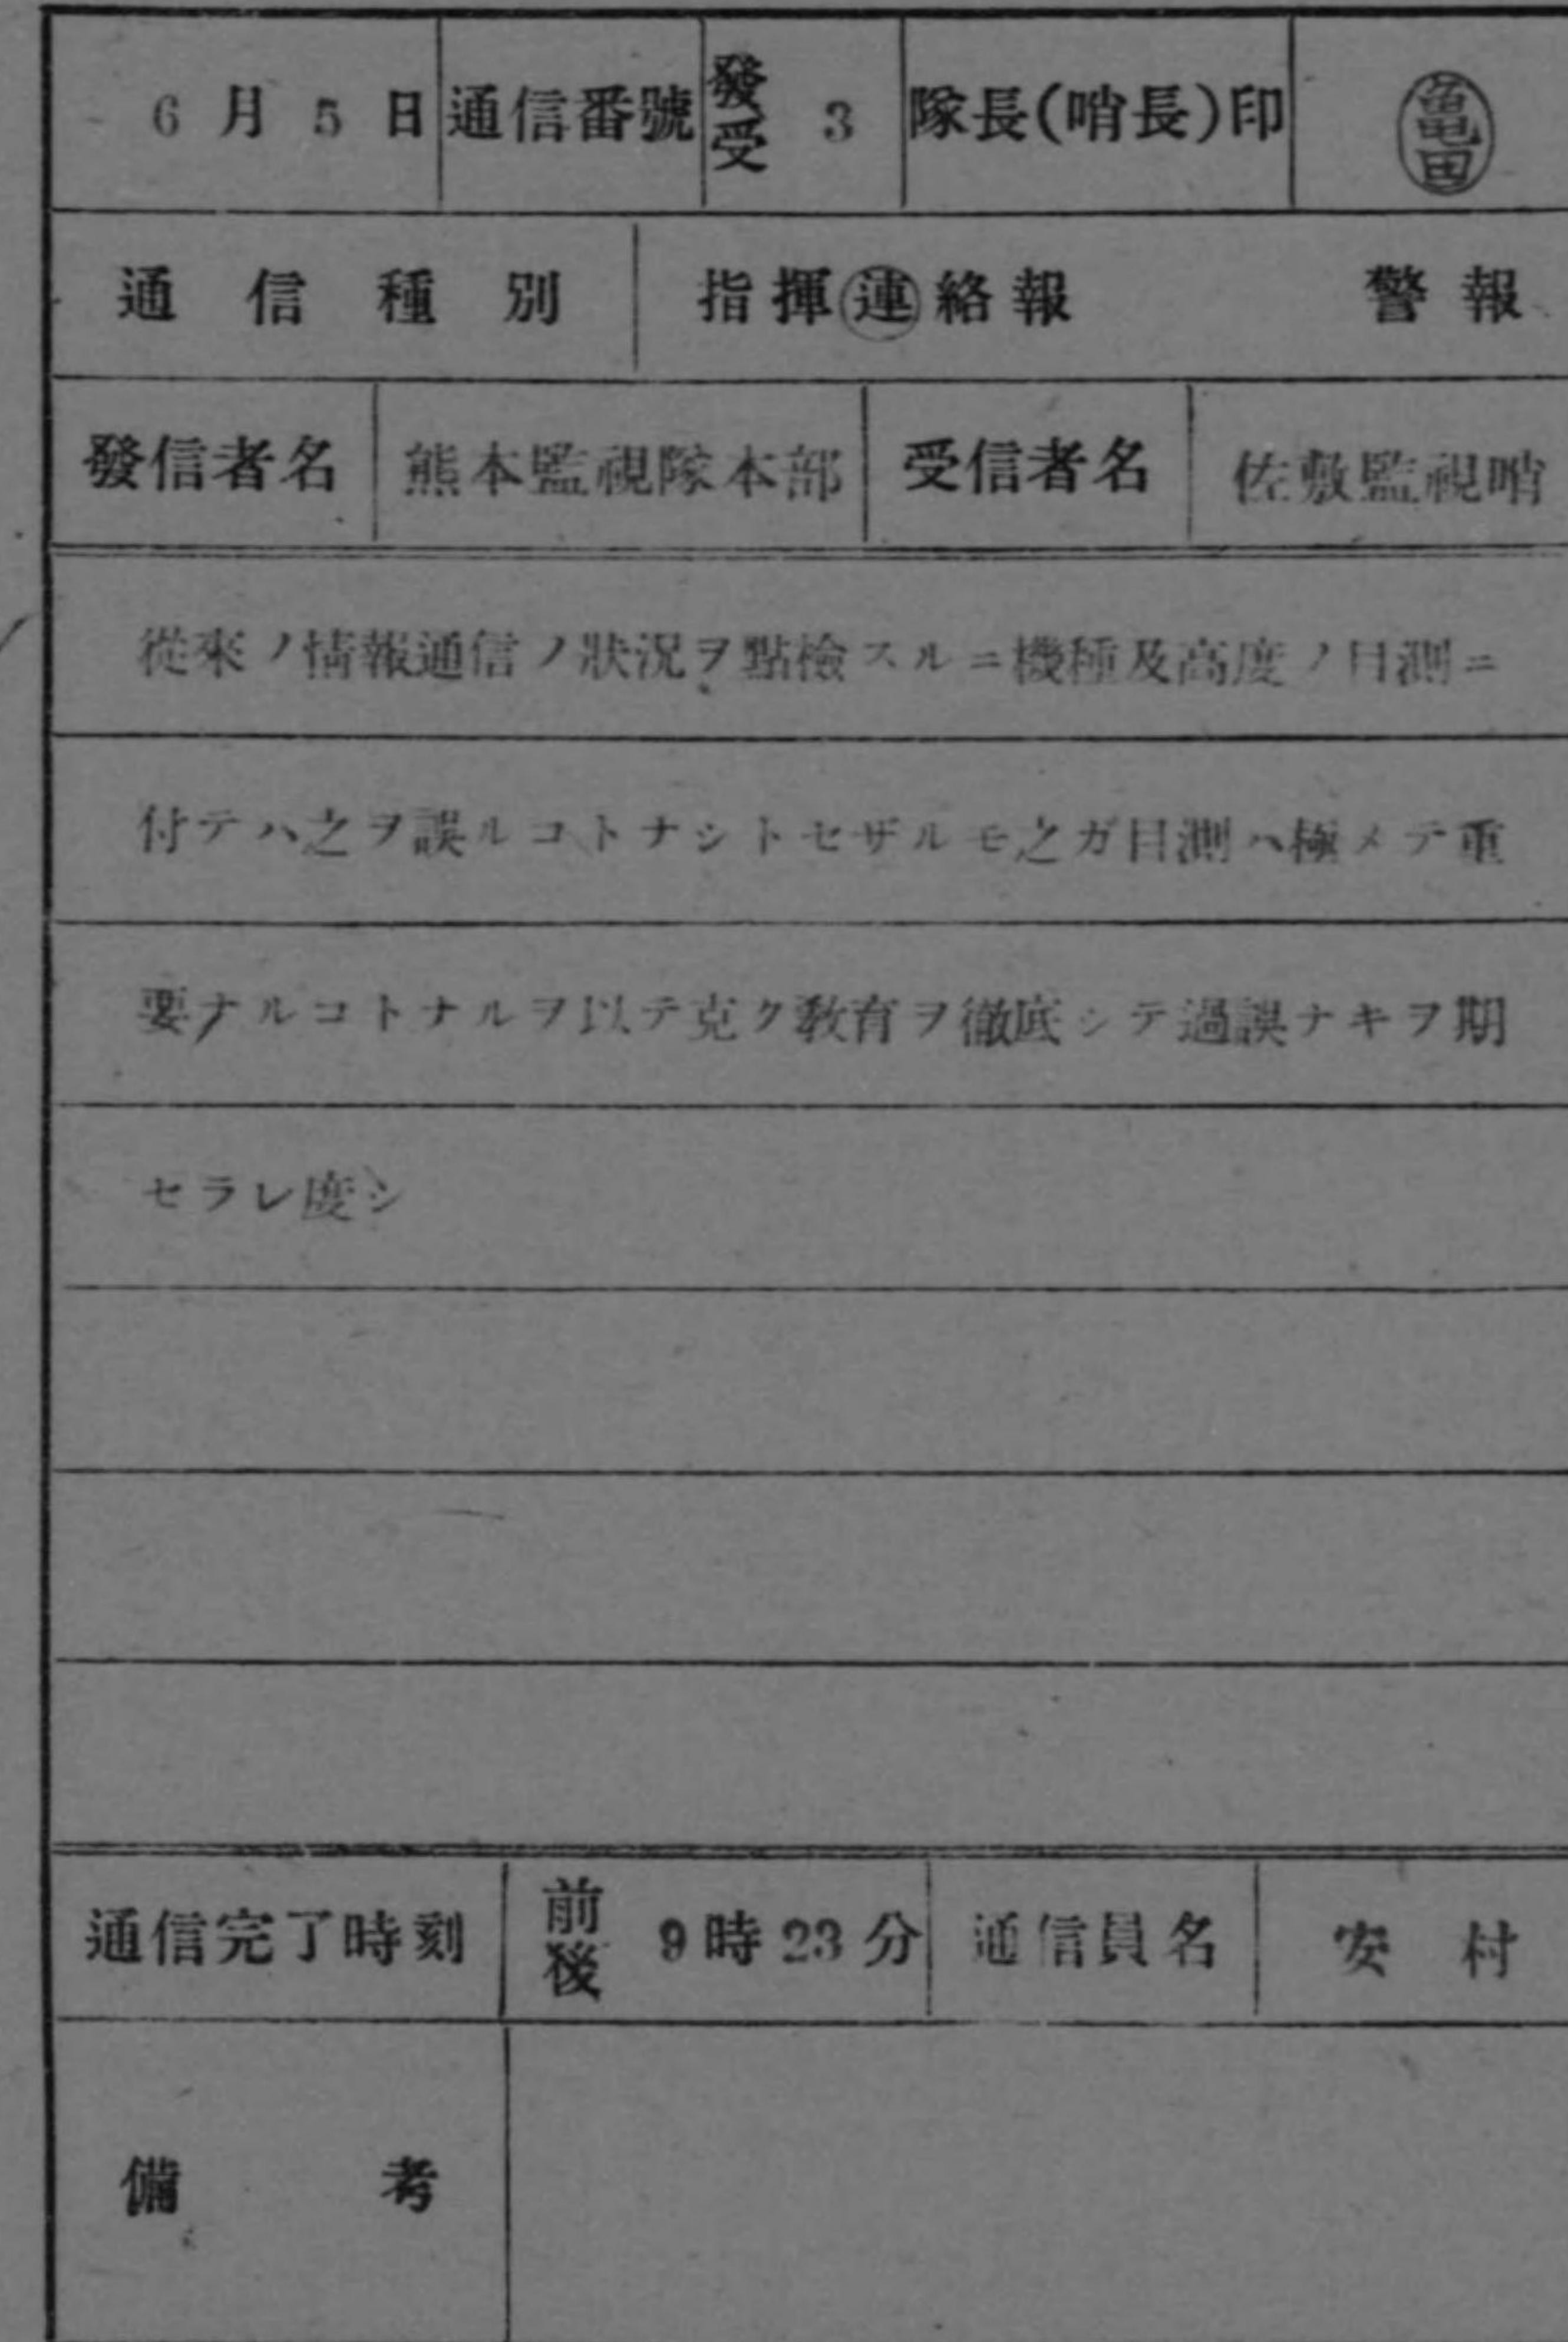 6月5日 通信番號 發受 3 隊長(哨長)印 亀田
通信種別 指揮連絡報 警報
發信者名 熊本監視隊本部 受信者名 佐敷監視哨
從來ノ情報通信ノ狀況ヲ點檢スルニ機種及高度ノ目測ニ
付テハ之ヲ誤ルコトナシトセザルモ之ガ目測ハ極メテ重
要ナルコトナルヲ以テ克ク敎育ヲ徹底シテ過誤ナキヲ期
セラレ度シ
通信完了時刻 前後 9時23分 通信員名 安村
備考